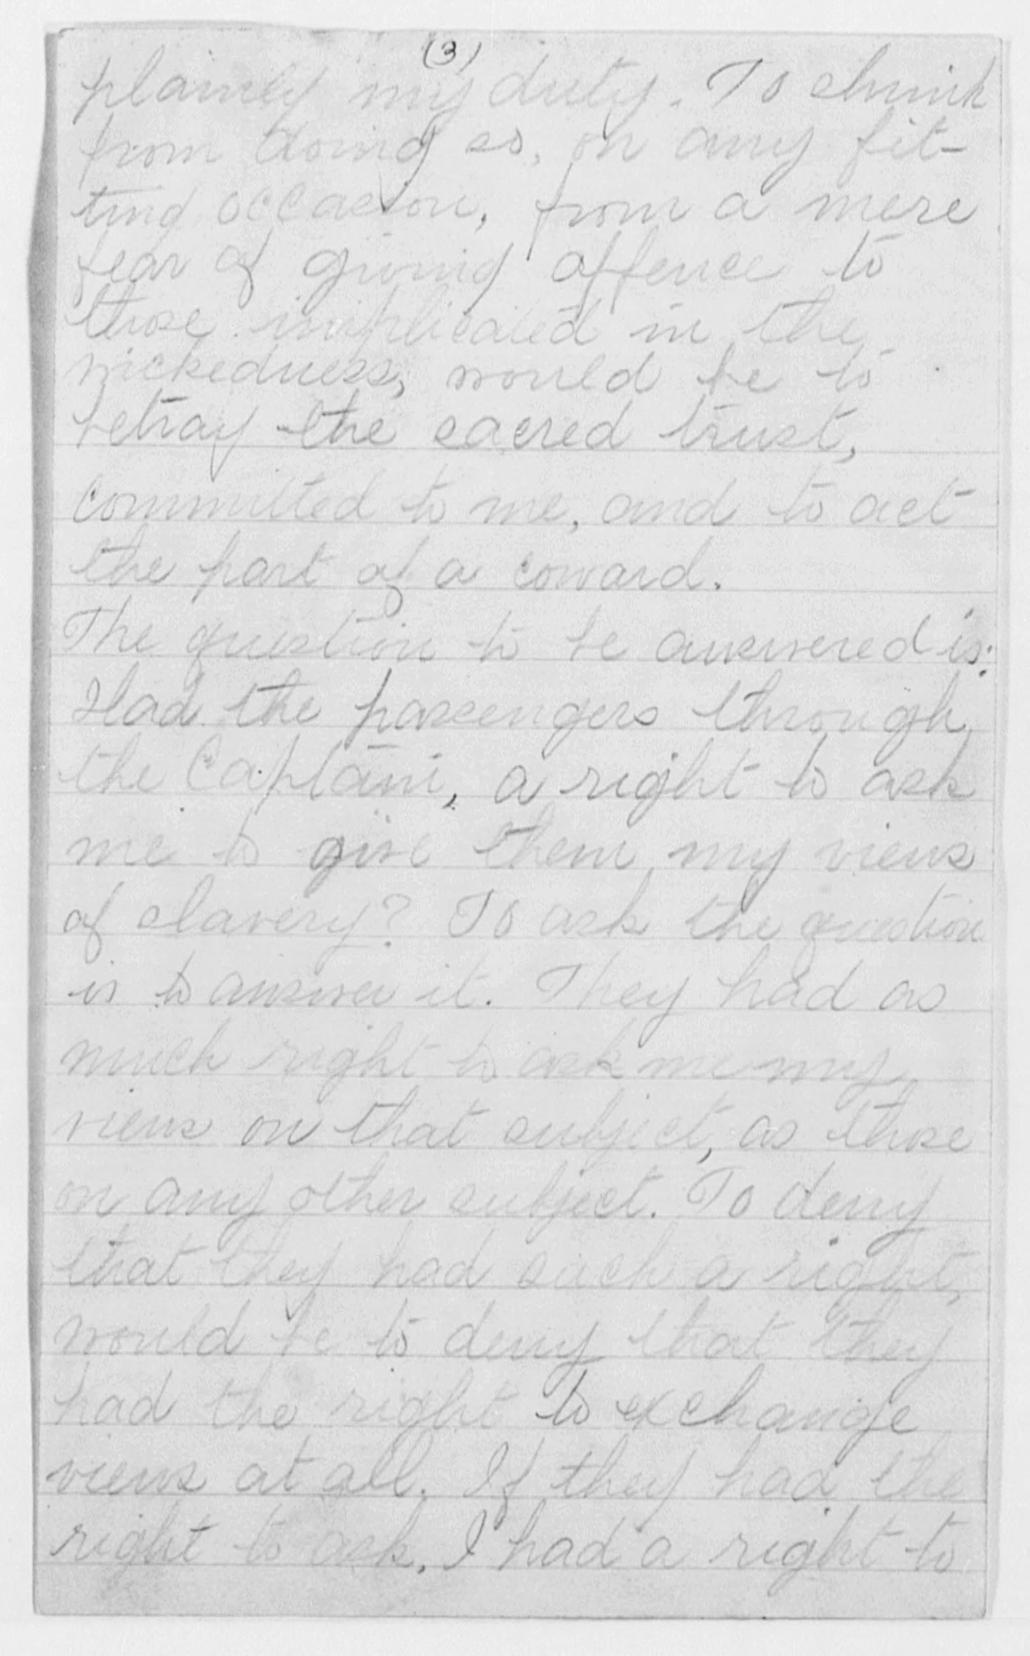 (3)
plainly my duty. To shrink
from doing so, on any fit-
ting occasion, from a mere
fear of giving offence to
those implicated in the
wickedness, would be to
betray the sacred trust,
committed to me, and to act
the part of a coward.
The question to be answered is:
Had the passengers through
the Captain, a right to ask
me to give them my views
of slavery? To ask the question
is to answer it. They had as
much right to ask me my
views on that subject, as those
on any other subject. To deny
that they had such a right,
would be to deny that they
had the right to exchange
views at all. If they had the
right to ask, I had a right to